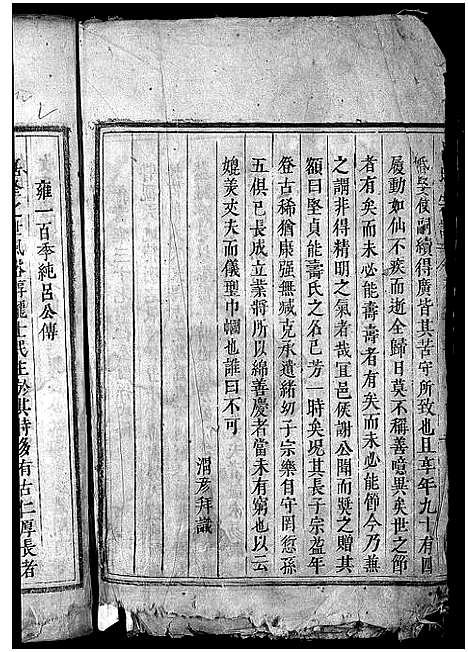 婚娶俊嗣續得廣皆其苦守所致也且享年九十有四
履動如仙不疾而逝全歸日莫不稱善噫異矣世之節
者有矣而未必能壽壽者有矣而未必能節今乃兼
之謂非得精明之氣者哉宜邑侯謝公聞而獎之贈其
額曰堅貞能壽氏之名已芳一時矣況其長子宗盈年
登古稀猶康强無減克承遺緒幼子宗樂自守罔愆孫
五俱已長成立業將所以綿善慶者當未有窮也以云
媲美丈夫而儀型巾幗也誰曰不可
渭彥拜識
雍一百季純呂公傳
之世風俗淳龐士民生於其時多有古仁厚長者